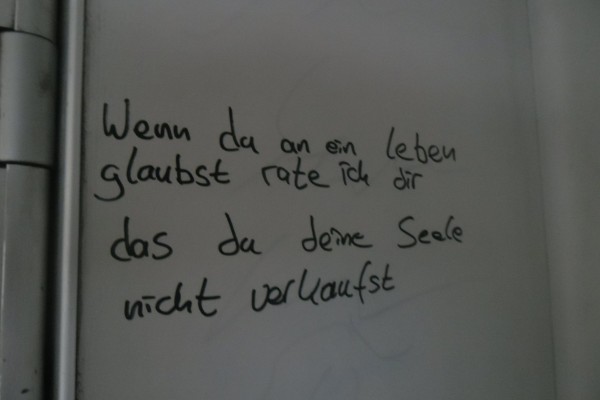 Wenn du an ein leben
glaubst rate ich dir
das du deine Seele
nicht verkaufst